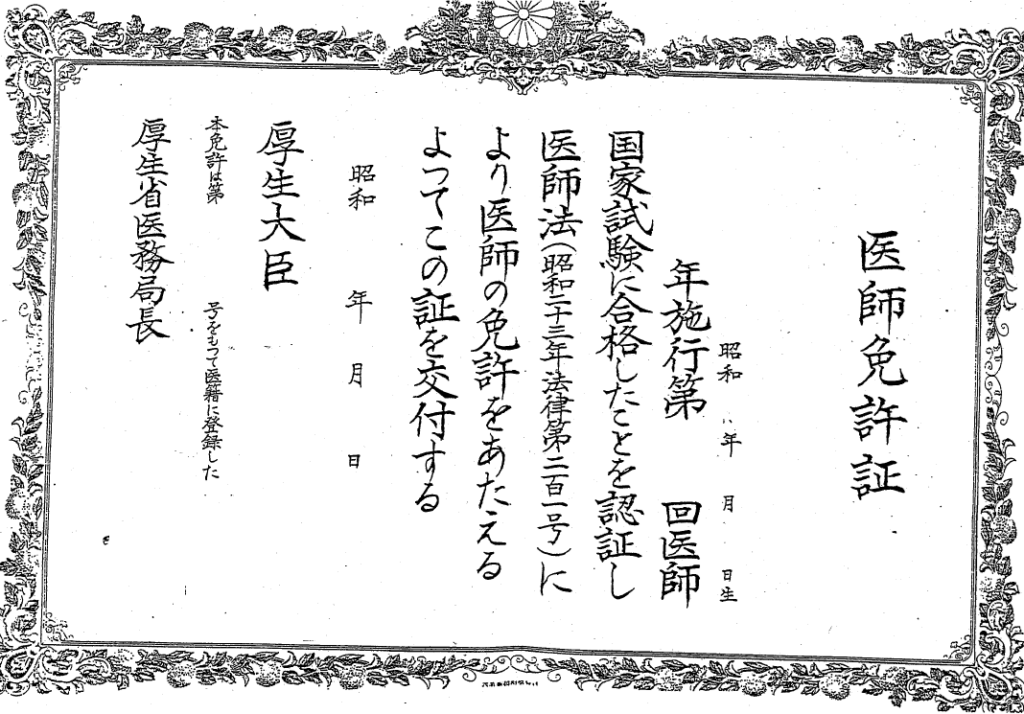 医師免許証
昭和　年　月　日生
年施行第　回医師
国家試験に合格したことを認証し
医師法（昭和二十三年法律第二百一号）に
より医師の免許をあたえる
よつてこの証を交付する
昭和　年　月　日
厚生大臣
本免許は第　号をもつて医籍に登録した
厚生省医務局長